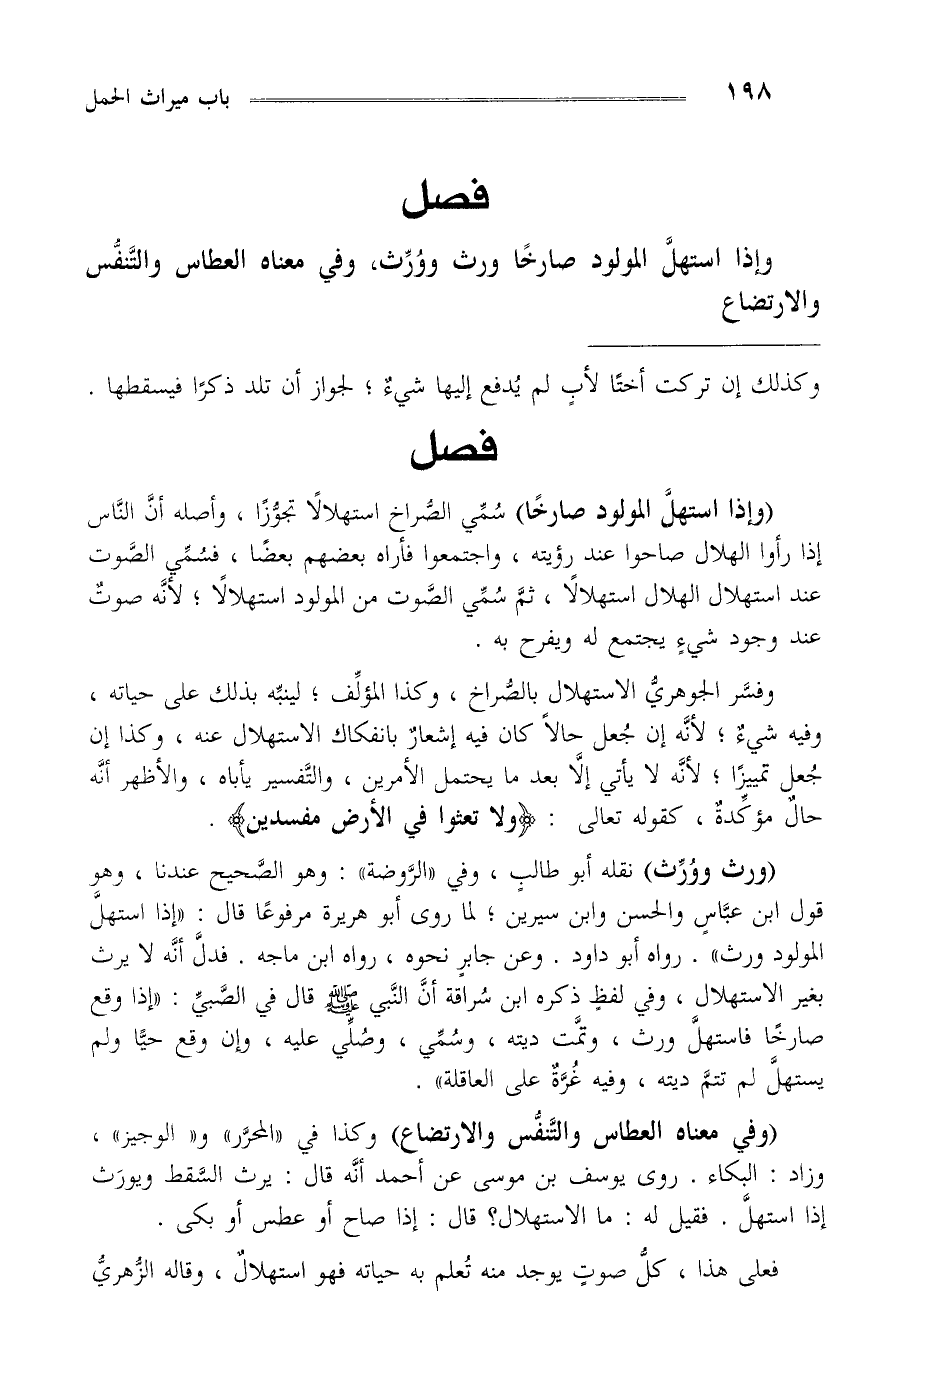 ١٩٨ باب ميراث الحمل
فصل
وإذا استهلَّ المولود صارخًا ورث ووُرِّث، وفي معناه العطاس والتَّنفُّس
والارتضاع
وكذلك إن تركت أختًا لأبٍ لم يُدفع إليها شيءٌ ؛ لجواز أن تلد ذكرًا فيسقطها .
فصل
(وإذا استهلَّ المولود صارخًا) سُمِّي الصُّراخ استهلالًا تجوُّزًا ، وأصله أنَّ النَّاس
إذا رأوا الهلال صاحوا عند رؤيته ، واجتمعوا فأراه بعضهم بعضًا ، فسُمِّي الصَّوت
عند استهلال الهلال استهلالًا ، ثمَّ سُمِّي الصَّوت من المولود استهلالًا ؛ لأنَّه صوتٌ
عند وجود شيءٍ يجتمع له ويفرح به .
وفسَّر الجوهريُّ الاستهلال بالصُّراخ ، وكذا المؤلِّف ؛ لينبِّه بذلك على حياته ،
وفيه شيءٌ ؛ لأنَّه إن جُعل حالاً كان فيه إشعارٌ بانفكاك الاستهلال عنه ، وكذا إن
جُعل تمييزًا ؛ لأنَّه لا يأتي إلَّا بعد ما يحتمل الأمرين ، والتَّفسير يأباه ، والأظهر أنَّه
حالٌ مؤكِّدةٌ ، كقوله تعالى : ﴿ولا تعثوا في الأرض مفسدين﴾ .
(ورث ووُرِّث) نقله أبو طالبٍ ، وفي «الرَّوضة» : وهو الصَّحيح عندنا ، وهو
قول ابن عبَّاسٍ والحسن وابن سيرين ؛ لما روى أبو هريرة مرفوعًا قال : «إذا استهلَّ
المولود ورث» . رواه أبو داود . وعن جابرٍ نحوه ، رواه ابن ماجه . فدلَّ أنَّه لا يرث
بغير الاستهلال ، وفي لفظٍ ذكره ابن سُراقة أنَّ النَّبي ﷺ قال في الصَّبيِّ : «إذا وقع
صارخًا فاستهلَّ ورث ، وتمَّت ديته ، وسُمِّي ، وصُلِّي عليه ، وإن وقع حيًّا ولم
يستهلَّ لم تتمَّ ديته ، وفيه غُرَّةٌ على العاقلة» .
(وفي معناه العطاس والتَّنفُّس والارتضاع) وكذا في «المحرَّر» و« الوجيز» ،
وزاد : البكاء . روى يوسف بن موسى عن أحمد أنَّه قال : يرث السَّقط ويورَث
إذا استهلَّ . فقيل له : ما الاستهلال؟ قال : إذا صاح أو عطس أو بكى .
فعلى هذا ، كلُّ صوتٍ يوجد منه تُعلم به حياته فهو استهلالٌ ، وقاله الزُّهريُّ